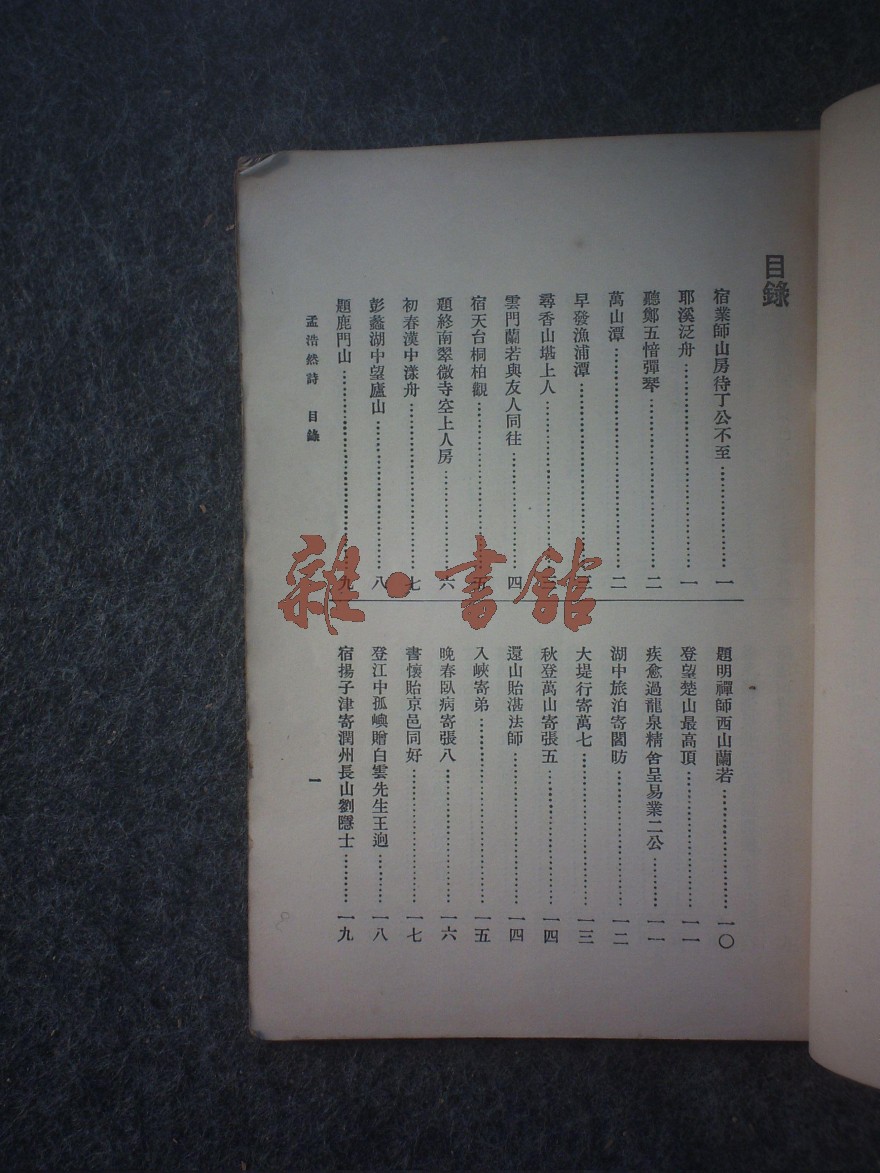 目錄
宿業師山房待丁公不至………………一
耶溪泛舟………………一
聽鄭五愔彈琴………………二
萬山潭………………二
早發漁浦潭………………三
尋香山堪上人………………三
雲門蘭若與友人同往………………四
宿天台桐柏觀………………五
題終南翠微寺空上人房………………六
初春漢中漾舟………………七
彭蠡湖中望廬山………………八
題鹿門山………………九
題明禪師西山蘭若………………一〇
登望楚山最高頂………………一一
疾愈過龍泉精舍呈易業二公………………一一
湖中旅泊寄閻昉………………一二
大堤行寄萬七………………一三
秋登萬山寄張五………………一四
還山貽湛法師………………一四
入峽寄弟………………一五
晚春臥病寄張八………………一六
書懷貽京邑同好………………一七
登江中孤嶼贈白雲先生王迥………………一八
宿揚子津寄潤州長山劉隱士………………一九
孟浩然詩 目錄 一
雜·書館